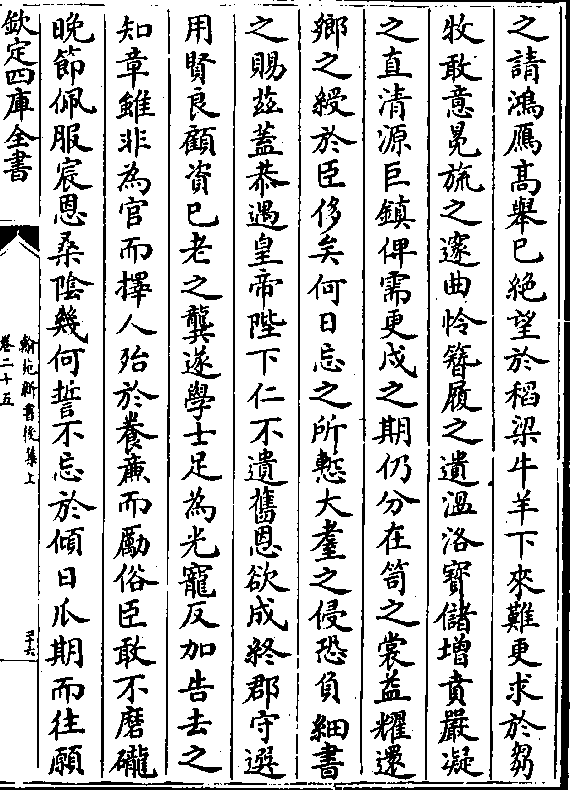 之請鴻鴈髙舉已絶望於稻梁牛羊下來難更求於芻
牧敢意冕旒之邃曲怜簪履之遺溫洛寶儲增賁嚴凝
之直清源巨鎮俾需更戍之期仍分在笥之裳益耀還
鄉之綬於臣侈矣何日忘之所慙大耋之侵恐負細書
之賜茲蓋恭遇皇帝陛下仁不遺舊恩欲成終郡守選
用賢良顧資已老之龔遂學士足為光寵反加告去之
知章雖非為官而擇人殆於養亷而勵俗臣敢不磨礲
晚節佩服宸恩桑陰幾何誓不忘於傾日瓜期而往願
欽定四庫全書
翰苑新書後集上
卷二十五
三十六